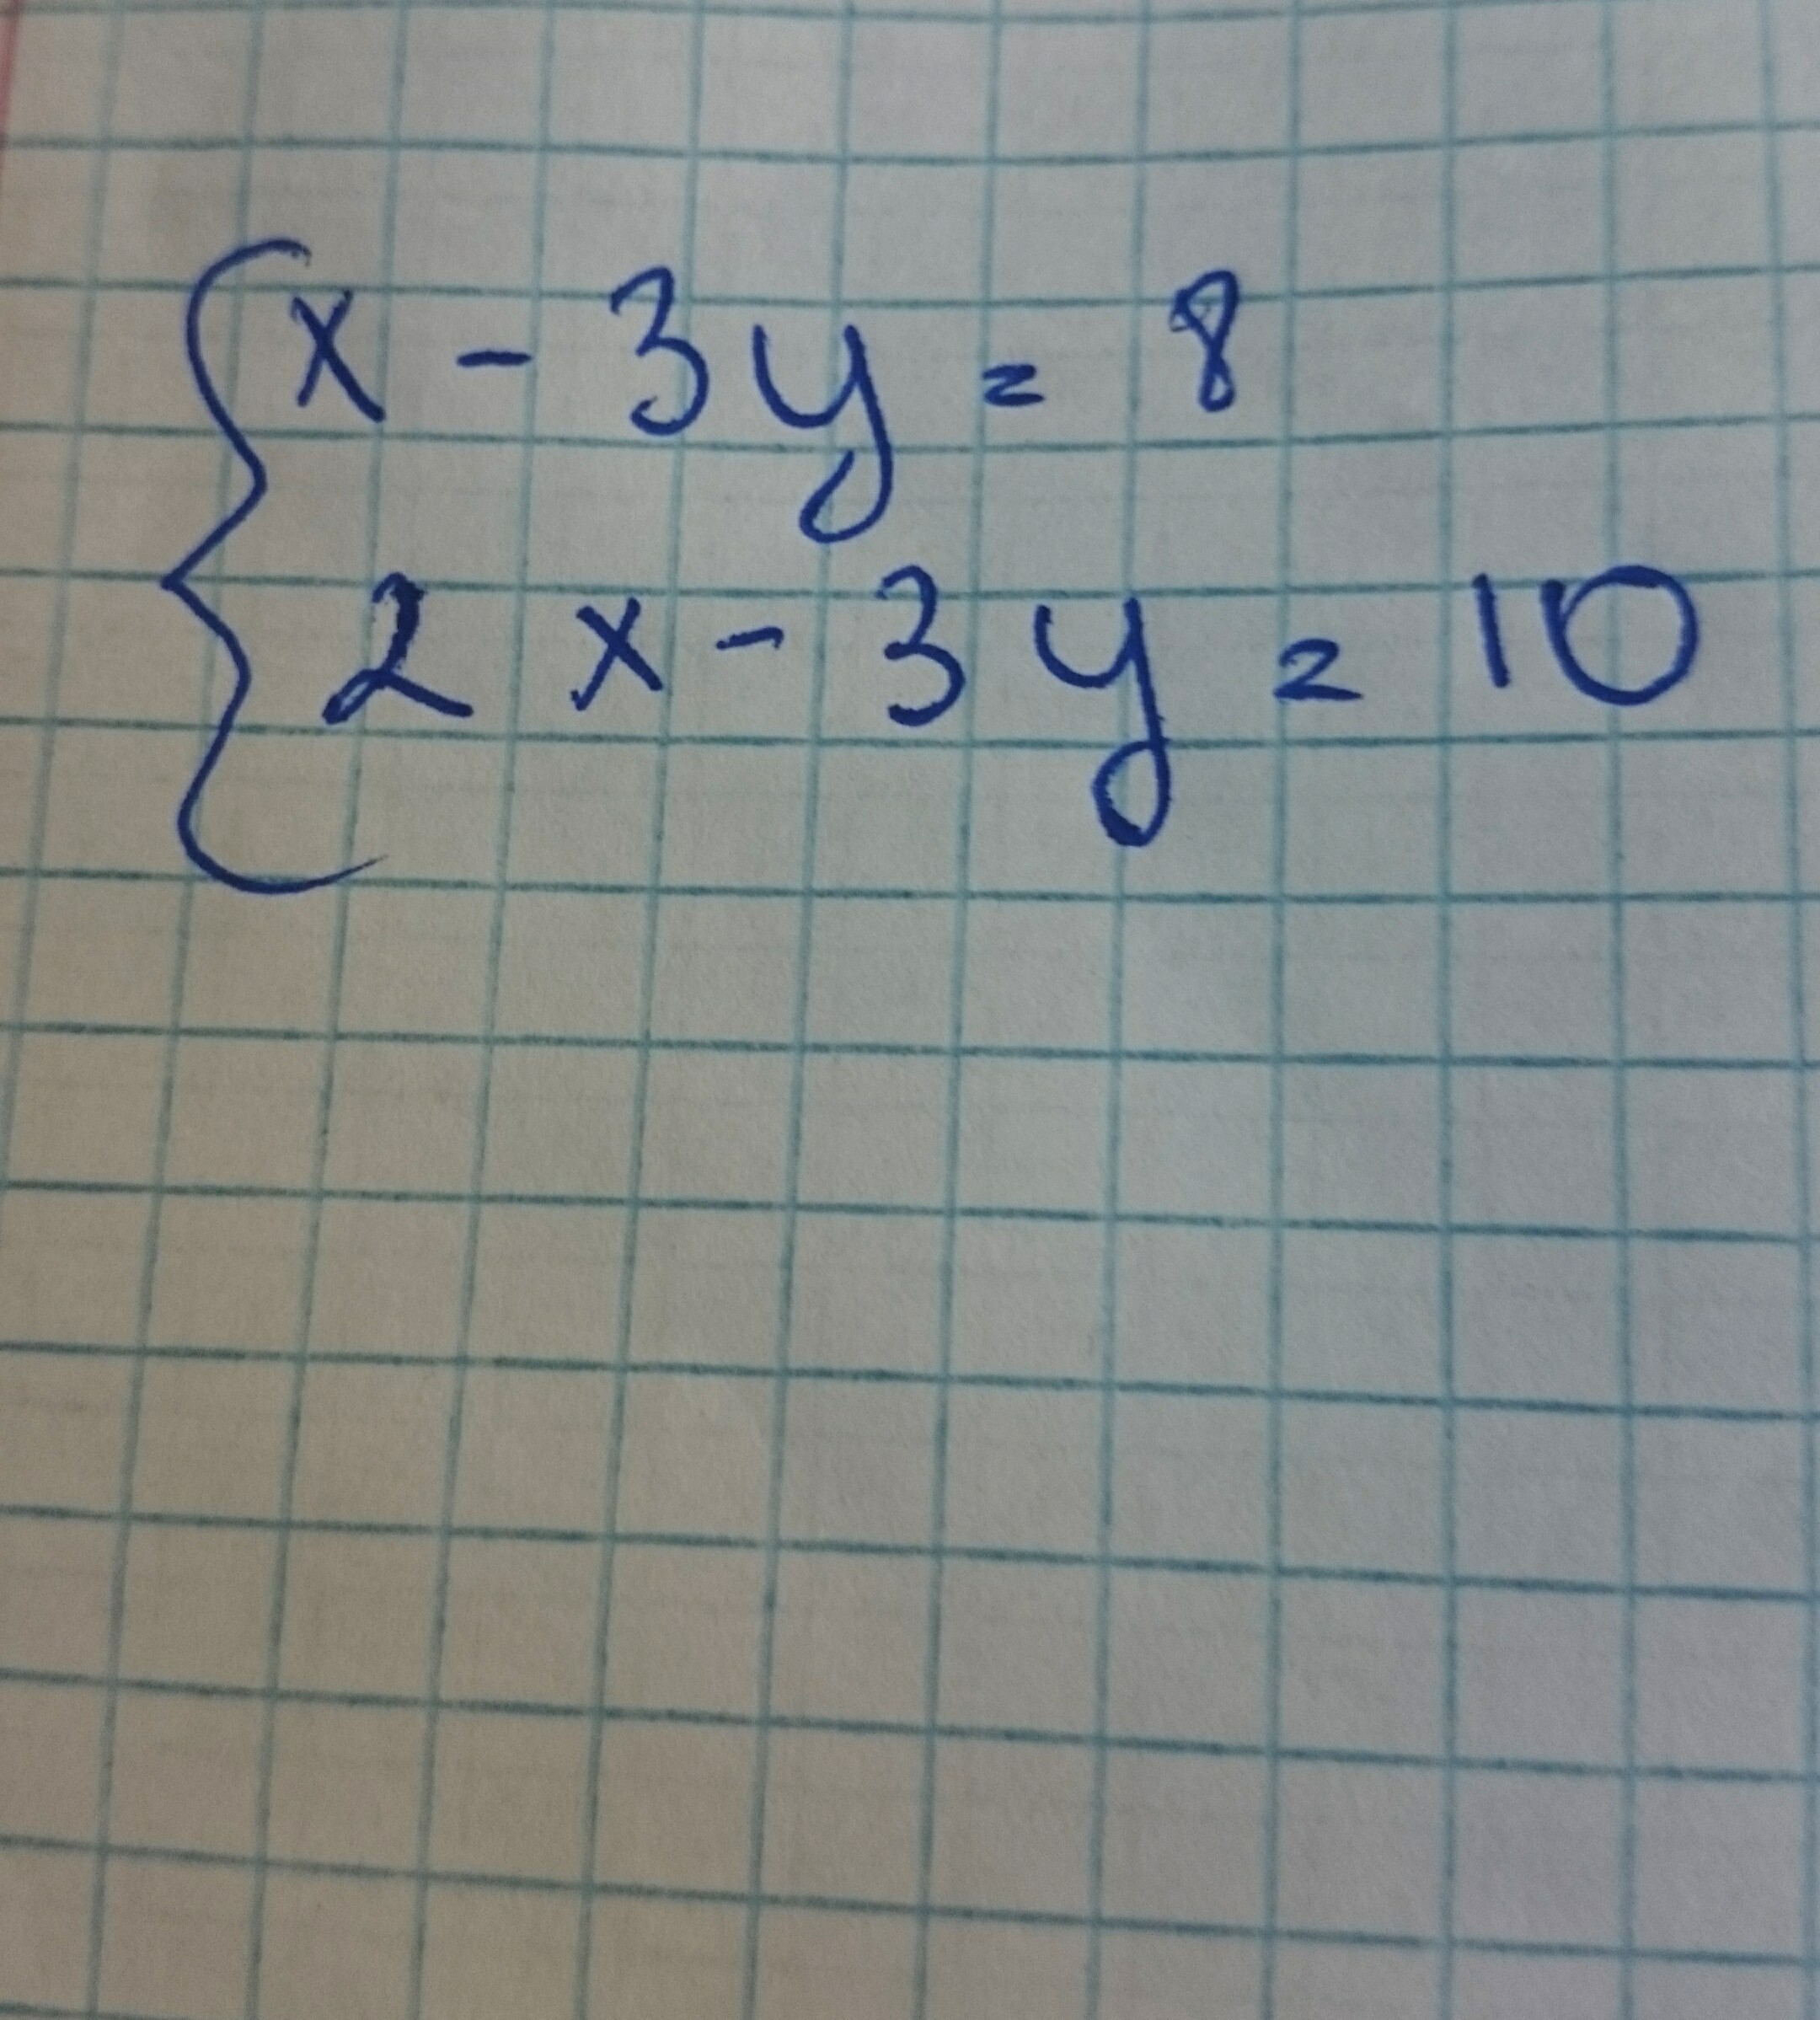 x - 3y = 8
2x - 3y = 10